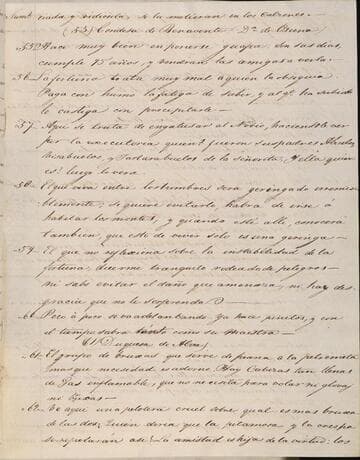 ruda, y ridicula, se la metieran en los Calzones.
(53) Condesa de Benavente Dª. de Osuna
55. Hace muy bien en ponerse guapa. Son sus dias,
cumple 75 años, y vendran las amigas a verla.
56. La fortuna trata muy mal a quien la obsequia.
Paga con humo la fatiga de subir, y al qe. ha subido
le castiga con precipitarle.
57. Aqui se trata de engatusar al Novio, haciendole ver
por la executoria quienes fueron sus padres, Abuelos,
bisabuelos y Tatarabuelos de la señorita; y ella quien
es? luego lo vera
58. El que viva entre los hombres será geringado irremisi-
blemente; si quiere evitarlo, habrá de irse á
habitar los montes, y quando esté alli, conocerá
tambien que esto de vivir solo es una geringa.
59. El que no reflexiona sobre la instabilidad de la
fortuna, duerme tranquilo rodeado de peligros
ni sabe evitar el daño que amenaza, ni hay des-
gracia que no le sorprenda
60. Poco á poco se va adelantando. Ya hace pinitos, y con
el tiempo sabrá tanto como su Maestra
(61) Duquesa de Alba
61. El grupo de brujas que sirve de peana á la petimetra
mas que necesidad es adorno. Hay Cabezas tan llenas
de Gas inflamable, que no necesita para volar ni globo,
ni brujas
62. Ve aqui una pelotera cruel sobre qual es mas bruja
de las dos: Quien diria que la petañosa y la crespa
se repelaran asi: La amistad es hija de la virtud: los